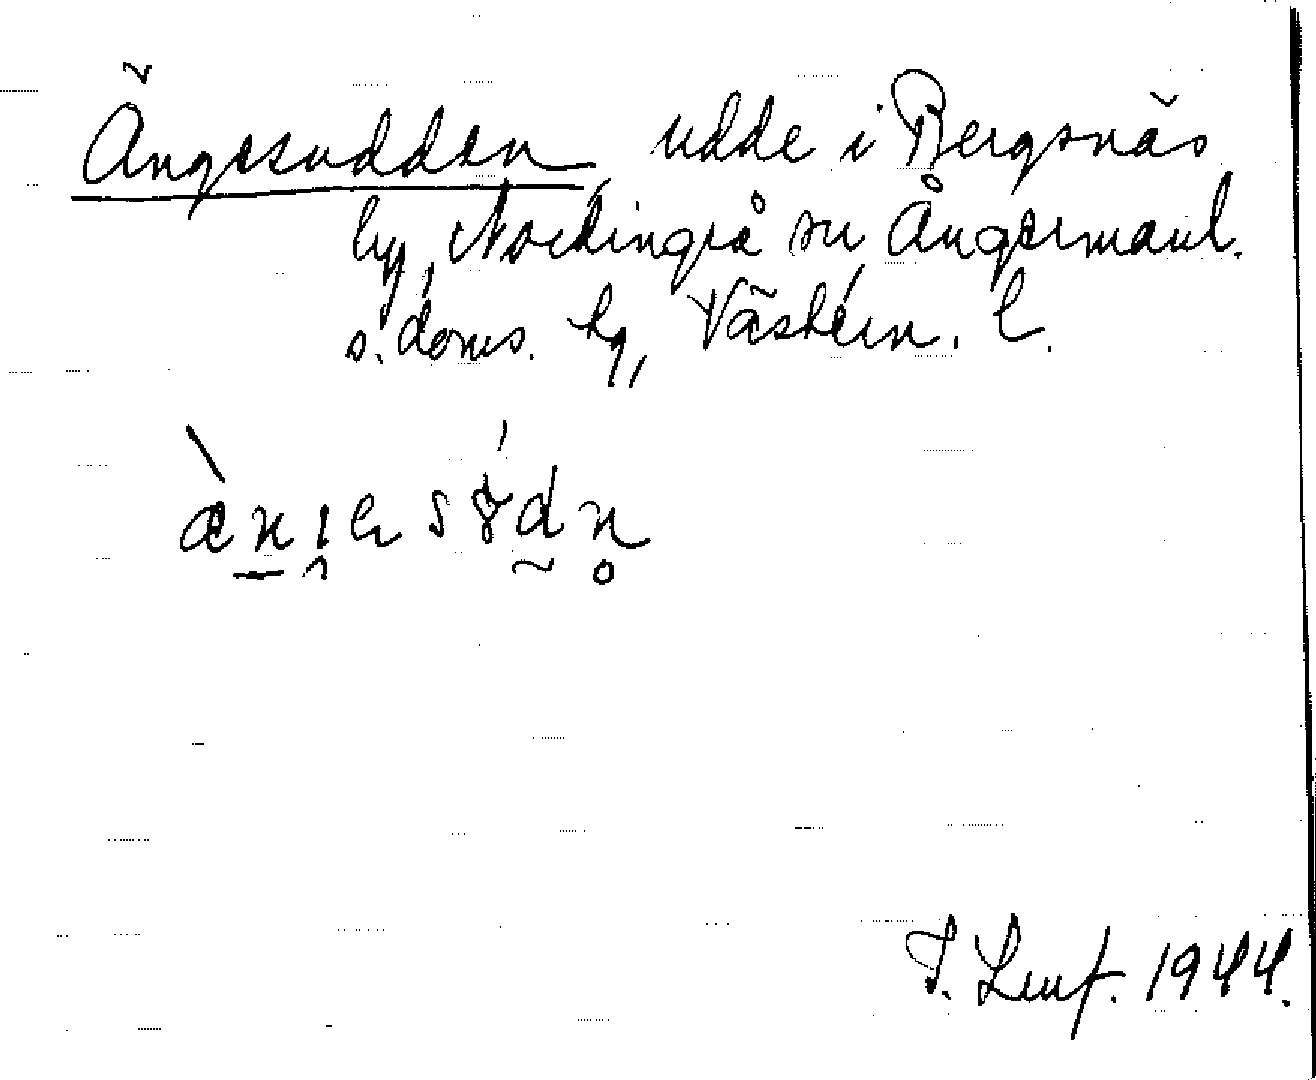 Ängesudden udde i Bergsnäs
by, Nordingrå sn Ångermanl.
s. doms. hg, Västern. l.
T. Lenf. 1944.